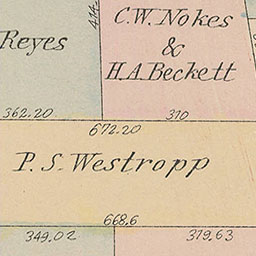 C.W. Nokes
414.
Reyes
&
H.A. Beckett
362.20
310
672.20
P. S. Westropp
668.6
349.02
319.63